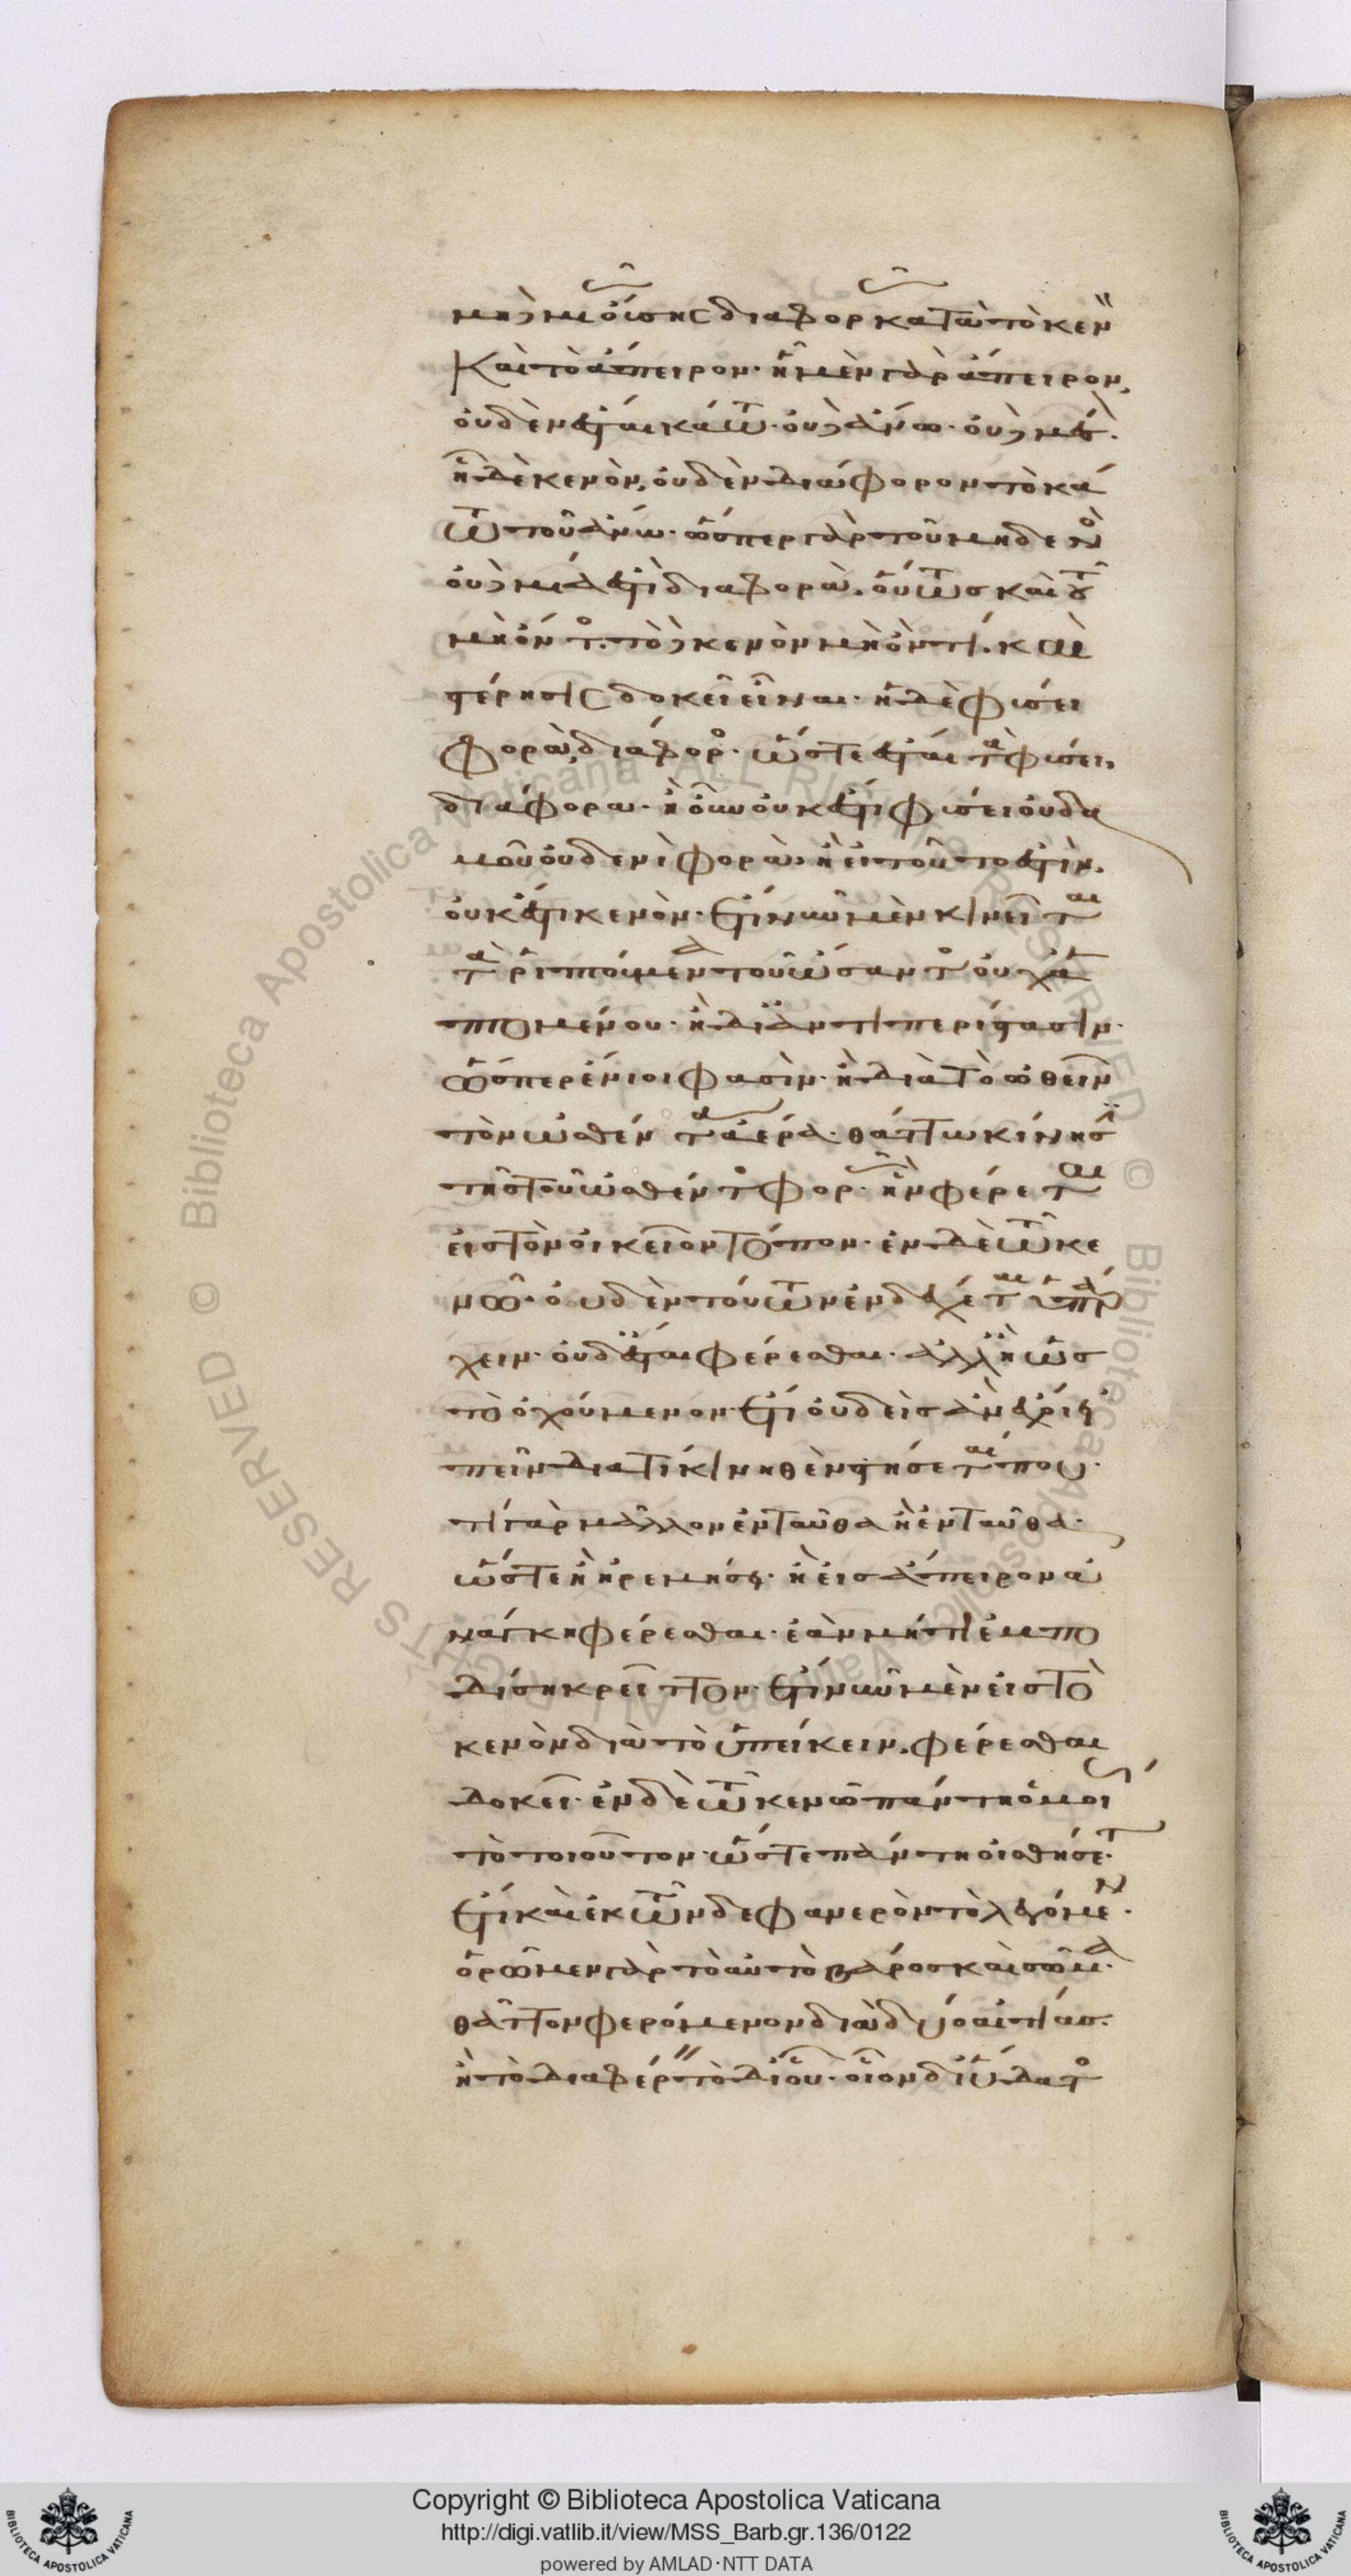 μηδεμιᾶς οὔσης διαφορᾶς κατὰ τὸ κενὸν
Καὶ τὸ ἄπειρον. ἧ μὲν γὰρ ἄπειρον,
οὐδὲν ἔσται κάτω. οὐδ' ἄνω. οὐδὲ μέσον.
ἧ δὲ κενὸν, οὐδὲν διάφορον τὸ κά
τω τοῦ ἄνω. ὥσπερ γὰρ τοῦ μηδενὸς
οὐδεμία ἐστὶ διαφορὰ. οὕτως καὶ τοῦ
μὴ ὄντος. τὸ δὲ κενὸν μὴ ὄν τι. καὶ
στέρησις δοκεῖ εἶναι. ἡ δὲ φύσει
φορὰ, διάφορος. ὥστε ἔσται τὰ φύσει,
διάφορα. ἢ οὖν οὐκ ἔστι φύσει οὐδα
μοῦ οὐδενὶ φορὰ. ἢ εἰ τοῦτο ἐστὶν.
οὐκ ἔστι κενὸν. ἔτι νῦν μὲν κινεῖται
τὰ ῥιπτούμενα τοῦ ὤσαντος οὐχ ἁ
πτομένου. ἢ δι' ἀντιπερίστασιν.
ὥσπερ ἔνιοι φασὶν. ἢ διὰ τὸ ὠθεῖν
τὸν ὠσθέντα ἀέρα. θάττω κίνησιν
τῆς τοῦ ὠσθέντος φορᾶς. ἣν φέρεται
εἰς τὸν οἰκεῖον τόπον. ἐν δὲ τῶ κε
νῶ. οὐδὲν τούτων ἐνδέχεται ὑπάρ
χειν. οὐδ' ἔσται φέρεσθαι. ἀλλ' ἢ ὡς
τὸ ὀχούμενον. ἔτι οὐδεὶς ἂν ἔχοι εἰ
πεῖν διατί κινηθὲν στήσεταί που.
τί γὰρ μᾶλλον ἐνταῦθα ἢ ἐνταῦθα.
ὥστε ἢ ἠρεμήσει. ἢ εἰς ἄπειρον ἀ
νάγκη φέρεσθαι. ἐὰν μή τι ἐμπο
δίση κρεῖττον. ἔτι νῦν μὲν εἰς τὸ
κενὸν διὰ τὸ ὑπείκειν. φέρεσθαι
δοκεῖ. ἐν δὲ τῶ κενῶ πάντη ὁμοίως
τὸ τοιοῦτον. ὥστε πάντη οἰσθήσεται.
ἔτι καὶ ἐκ τῶνδε φανερὸν τὸ λεγόμενον.
ὁρῶμεν γὰρ τὸ αὐτὸ βάρος καὶ σῶμα.
θᾶττον φερόμενον διὰ δύο αἰτίας.
ἢ τὸ διαφέρειν τὸ δι' οὗ. οἷον δι' ὕδατος